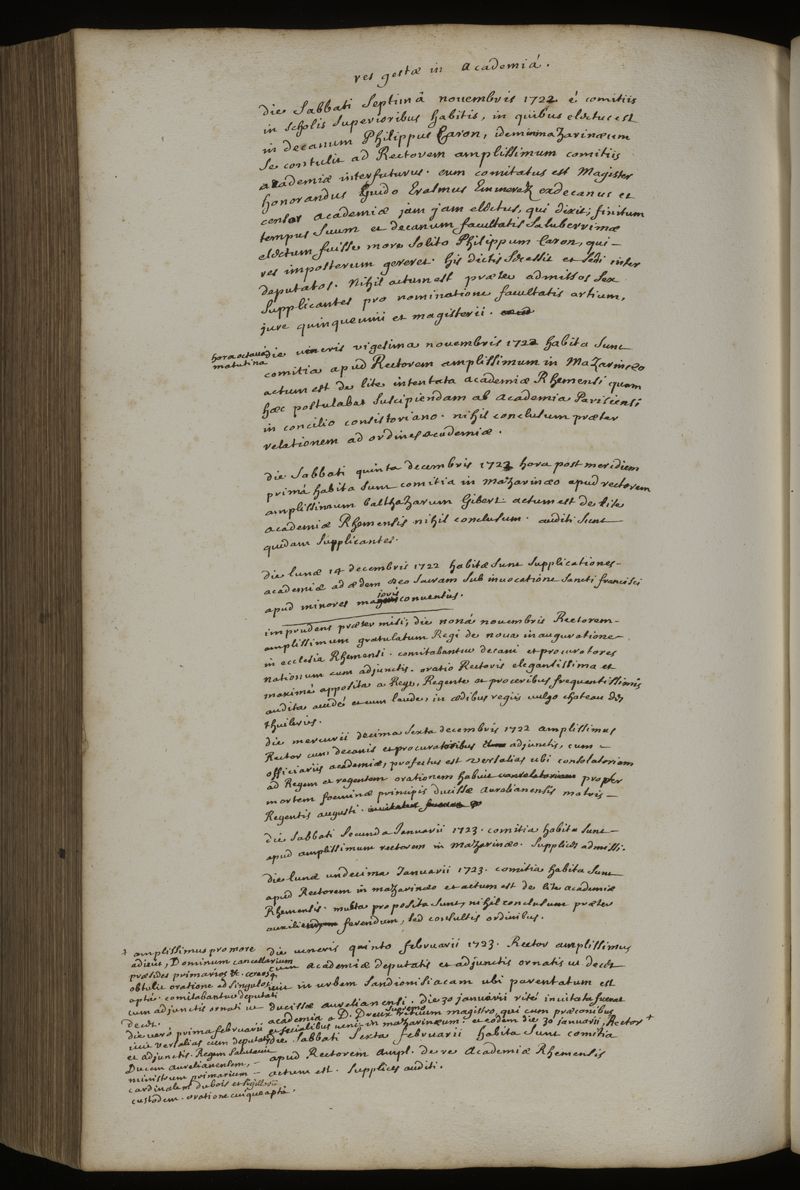 res gestæ in Academiâ.
die Sabbati Septimâ novembris 1722 é comitiis
in scholis superioribus habitis, in quibus electus est
in decanum Philippus Caron, idem in mazarinæum
se contulit ad Rectorem amplissimum comitiis
academiæ interfuturus. eum comitatus est Magister
honorandus Guido Erasmus Emmerez exdecanus et
censor academiæ jam jam electus, qui dixit; finitum
tempus suum et decanum facultatis saluberrimæ
electum fuisse more solito Philippum Caron, qui
res imposterum gereret. his dictis secessit et sedi inter
deputatos. Nihil actum est præter admissos sex
supplicantes pro nominatione facultatis artium,
jure quinquennii et magisterii.
hora octavâ
matutina
die veneris vigesima novembris 1722 habita sunt
comitia apud Rectorem amplissimum in Mazarinæo
actum est de lite intentata academiæ Rhemensi quam
hæc postulabat suscipiendam ab academia Parisiensi
in concilio consistoriano. nihil conclusum præter
relationem ad ordines academiæ.
die Sabbati quinta decembris 1722 hora post meridiem
primâ habita sunt comitia in mazarinæo apud rectorem
amplissimum balthazarum Gibert actum est de lite
academiæ Rhemensis nihil conclusum. auditi sunt
quidam supplicantes.
die lunæ 14 decembris 1722 habitæ sunt supplicationes
academiæ ad ædem deo sacram sub invocatione sancti francisci
apud minores conventus.
imprudens præter misi; die nonâ novembris Rectorem
amplissimum gratulatum Regi de nova inauguratione
in ecclesia Rhemensi. comitabantur decani et procuratores
nationum cum adjunctis. oratio Rectoris elegantissima et
maximé apposita a Rege, Regente et proceribus frequentissimis
audita avidé et cum laude, in ædibus regiis vulgo chateau des
thuileries.
die mercurii decima sexta decembris 1722 amplissimus
Rector cum decanis et procuratoribus adjunctis, cum
officiariis academiæ, profectus est versalias ubi consolatoriam
ad Regem et regentem orationem habuit propter
mortem foeminæ principis ducissæ aurelianensis matris
Regentis augusti.
die Sabbati secunda Januarii 1723. comitia habita sunt
apud amplissimum rectorem in mazarinæo. supplices admissi.
die lunæ undecima Januarii 1723. comitia habita sunt
apud Rectorem in mazarinæo et actum est de lite academiæ
Rhemensis. multa proposita sunt, nihil conclusum præter
auxilium ferendum, sed consultis ordinibus.
die veneris quinto februarii 1723. Rector amplissimus
cum academiæ deputatis et adjunctis ornatis ut decet
ivit in urbem Sandionisiacam ubi parentatum est
ducissæ aurelianensi. die 30 januarii rité invitata fuerat
academia a D. Dreux supremo rituum magistro, qui cum præconibus
et fecialibus venit in mazarinæum. et eodem die 30 januarii, Rector +
die Sabbati sexta februarii habita sunt comitia
apud Rectorem Ampl. de re Academiæ Rhemensis
actum est. supplices auditi.
+ amplissimus pro more
adivit, Dominum cancellarium
præsides primarios &c. cereosq.
obtulit oratione ad singulos
aptâ. comitabantur deputati
cum adjunctis ornati ut
decet.
die veró prima februarii
ivit versalias cum deputatis
et adjunctis. Regem salutavit
Ducem aurelianensem,
ministrum primarium
cardinalem dubois et sigillorum
custodem. oratione cuique aptâ.